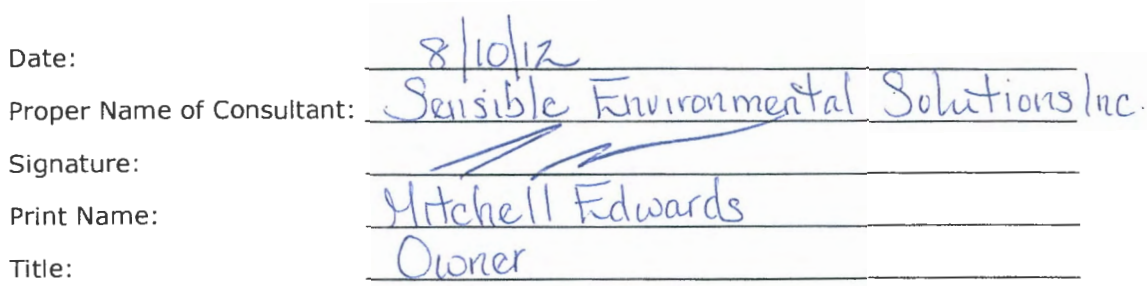 Date: 8/10/12
Proper Name of Consultant: Sensible Environmental Solutions Inc.
Signature:
Print Name: Mitchell Edwards
Title: Owner